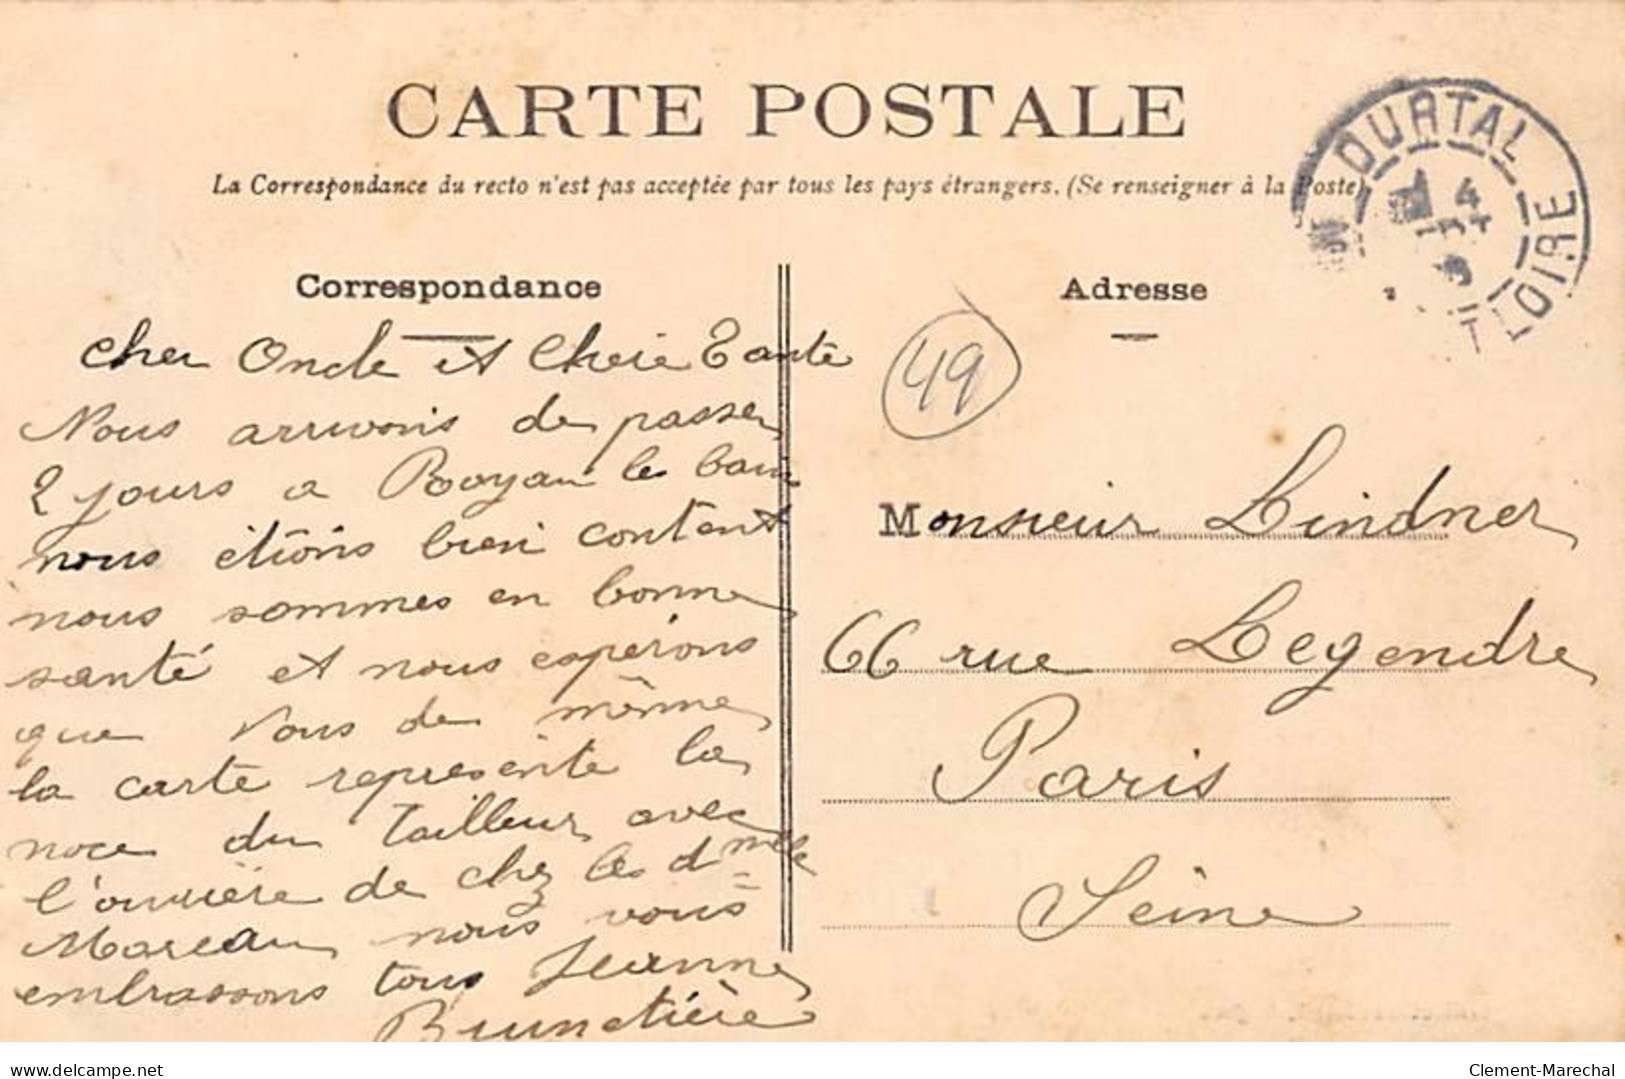 CARTE POSTALE
La Correspondance du recto n'est pas acceptée par tous les pays étrangers. (Se renseigner à la Poste)
DURTAL
4
T LOIRE
Correspondance
cher Oncle et Chere Tante
Nous arrivons de passer
2 jours a Royan les bain
nous étions bien content
nous sommes en bonne
santé et nous espérons
que Vous de même
la carte représente la
noce du tailleur avec
l'ouvrière de chez les dmelle
Moreau nous vous
embrassons tous Jeanne
Brunetière
49
Adresse
Monsieur Lindner
66 rue Legendre
Paris
Seine
delcampe.net
Clement-Marechal